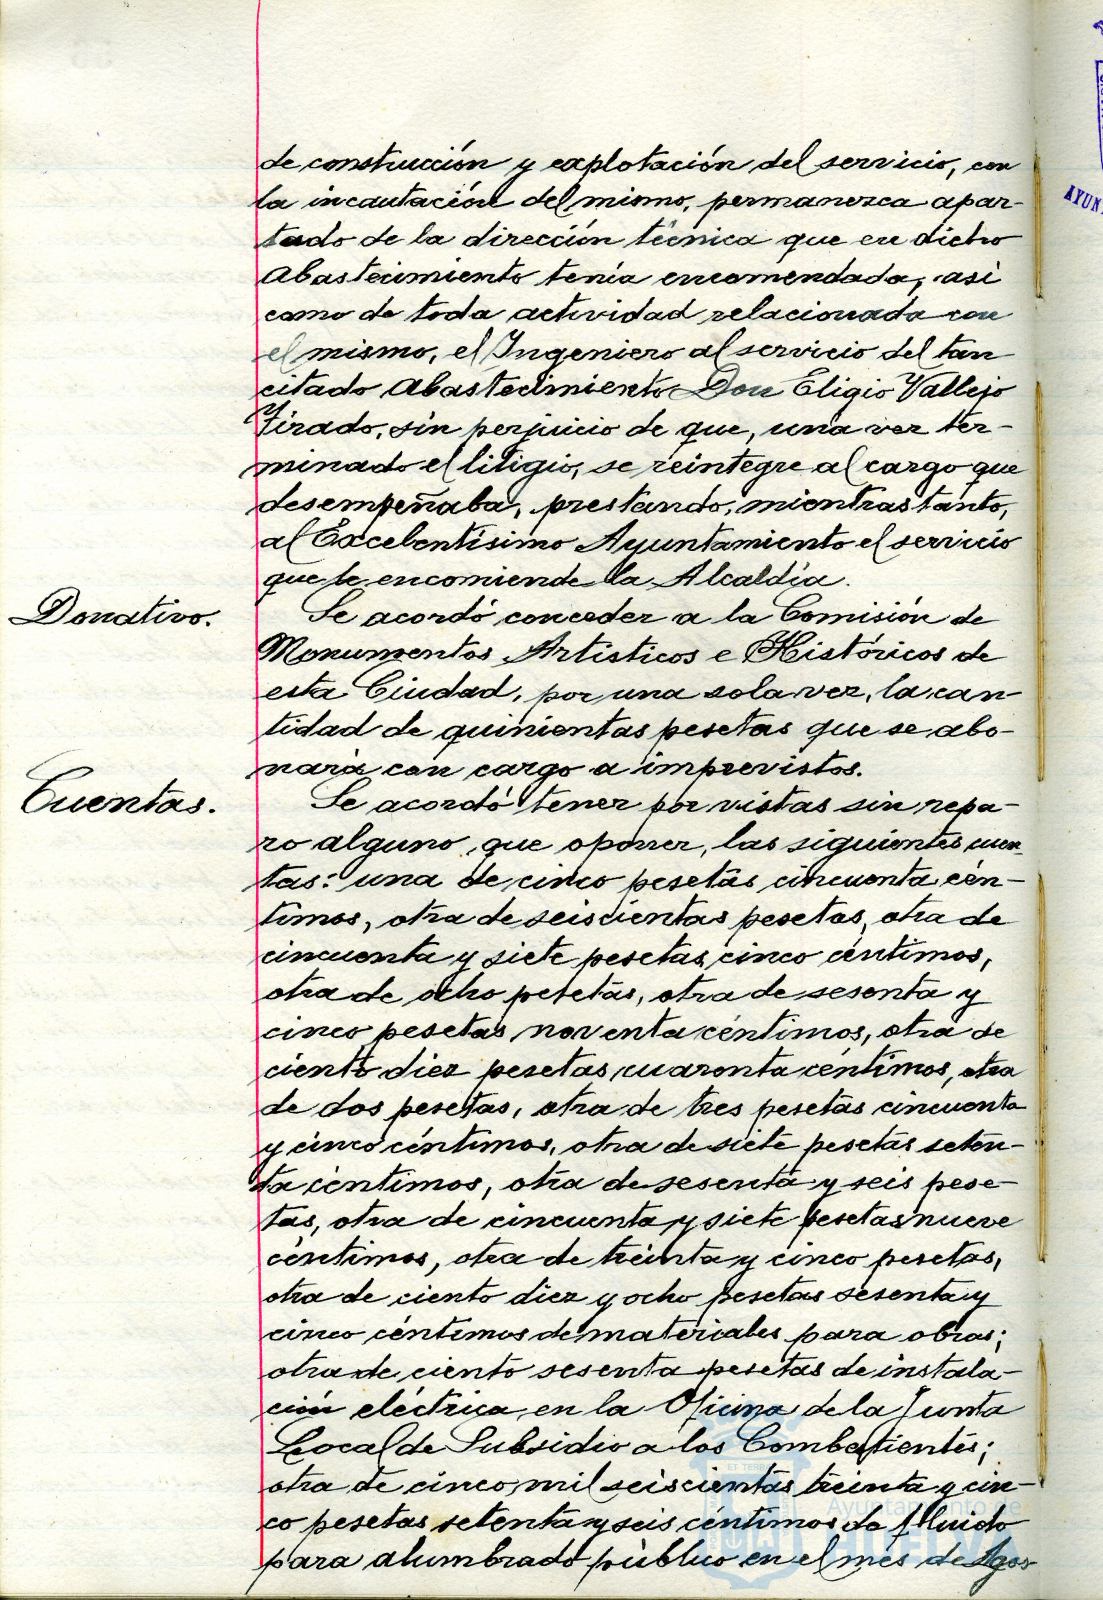 de construcción y explotación del servicio, con
la incautación del mismo, permanezca apar-
tado de la dirección técnica que en dicho
Abastecimiento tenía encomendada, asi
como de toda actividad relacionada con
el mismo, el Ingeniero al servicio del tan
citado Abastecimiento Don Eligio Vallejo
Tirado, sin perjuicio de que, una vez ter-
minado el litigio, se reintegre al cargo que
desempeñaba, prestando, mientras tanto,
al Excelentísimo Ayuntamiento el servicio
que le encomiende la Alcaldía.
Donativo.
Se acordó conceder a la Comisión de
Monumentos Artísticos e Históricos de
esta Ciudad, por una sola vez, la can-
tidad de quinientas pesetas que se abo-
nará con cargo a imprevistos.
Cuentas.
Se acordó tener por vistas sin repa-
ro alguno que oponer, las siguientes cuen-
tas: una de cinco pesetas cincuenta cén-
timos, otra de seiscientas pesetas, otra de
cincuenta y siete pesetas cinco céntimos,
otra de ocho pesetas, otra de sesenta y
cinco pesetas noventa céntimos, otra de
ciento diez pesetas cuaronta céntimos, otra
de dos pesetas, otra de tres pesetas cincuenta
y cinco céntimos, otra de siete pesetas seten-
ta céntimos, otra de sesenta y seis pese-
tas, otra de cincuenta y siete pesetas nueve
céntimos, otra de treinta y cinco pesetas,
otra de ciento diez y ocho pesetas sesenta y
cinco céntimos de materiales para obras;
otra de ciento sesenta pesetas de instala-
ción eléctrica en la Oficina de la Junta
Local de Subsidio a los Combatientes;
otra de cinco mil seiscientas treinta y cin-
co pesetas setenta y seis céntimos de fluido
para alumbrado público en el mes de Agos-
Ayuntamiento de
HUELVA
AYUN